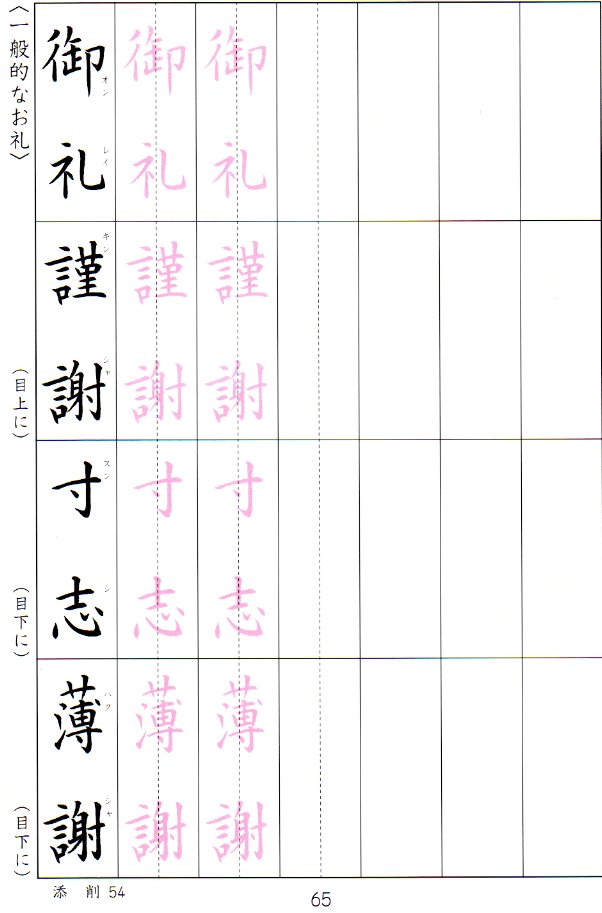 〈一般的なお礼〉
御礼 御礼 御礼
オン レイ
(目上に)
謹謝 謹謝 謹謝
キン シャ
(目下に)
寸志 寸志 寸志
スン シ
(目下に)
薄謝 薄謝 薄謝
ハク シャ
添削 54
65